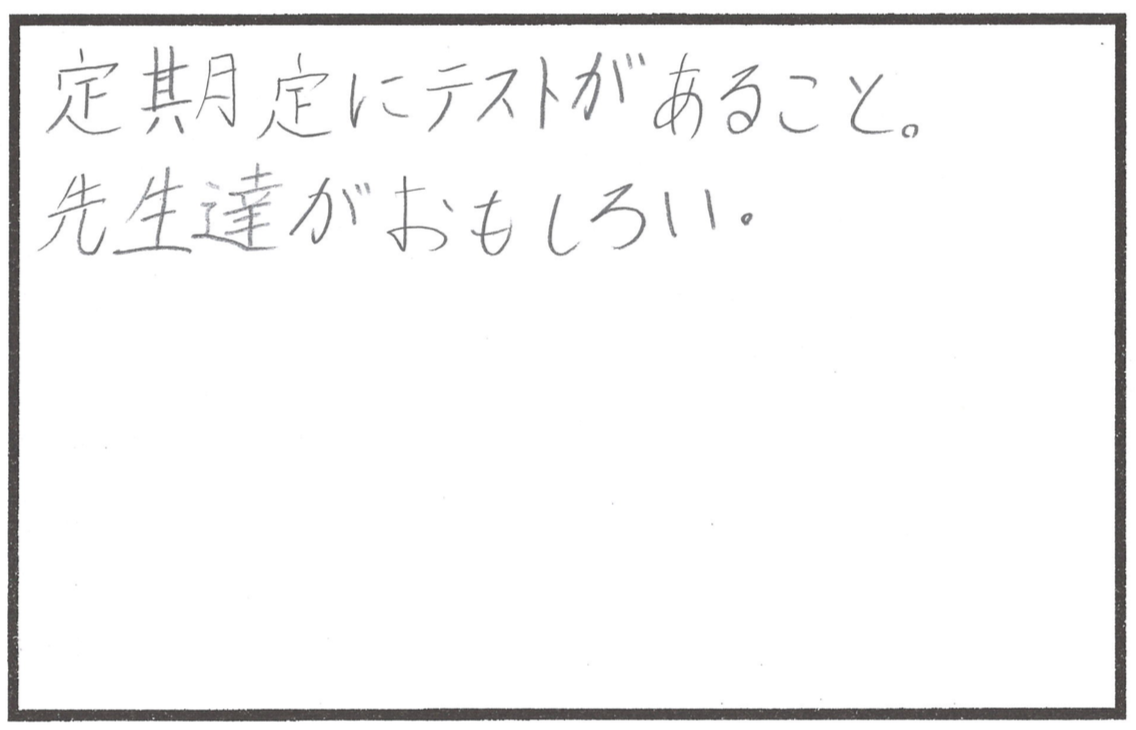 定期定にテストがあること。
先生達がおもしろい。